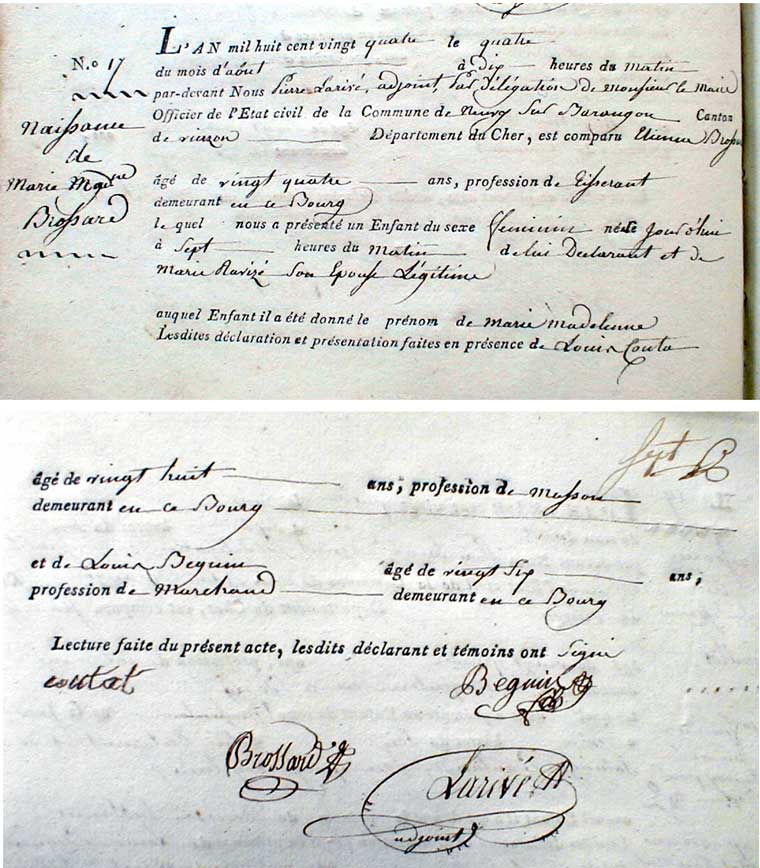 L'AN mil huit cent vingt quatre le quatre
N.o 17
du mois d'août à dix heures du matin
par-devant Nous Pierre Larivé, adjoint, par Délégation de monsieur le Maire
Officier de l'Etat civil de la Commune de Neuvy sur Barangon Canton
de vierzon Département du Cher, est comparu Etienne Brossard
Naissance
de
Marie Mgdne
Brossard
âgé de vingt quatre ans, profession de Tisserant
demeurant en ce Bourg
le quel nous a présenté un Enfant du sexe féminin née ce jour d'hui
à sept heures du matin de lui Declarant et de
Marie Ravizé son Epouse Légitime
auquel Enfant il a été donné le prénom de marie madelenne
Lesdites déclaration et présentation faites en présence de Louis Couta
sept
âgé de vingt huit ans, profession de Masson
demeurant en ce Bourg
et de Louis Beguin âgé de vingt six ans,
profession de Marchand demeurant en ce Bourg
Lecture faite du présent acte, lesdits déclarant et témoins ont signé
coutat Beguin
Brossard
Larivé
adjoint